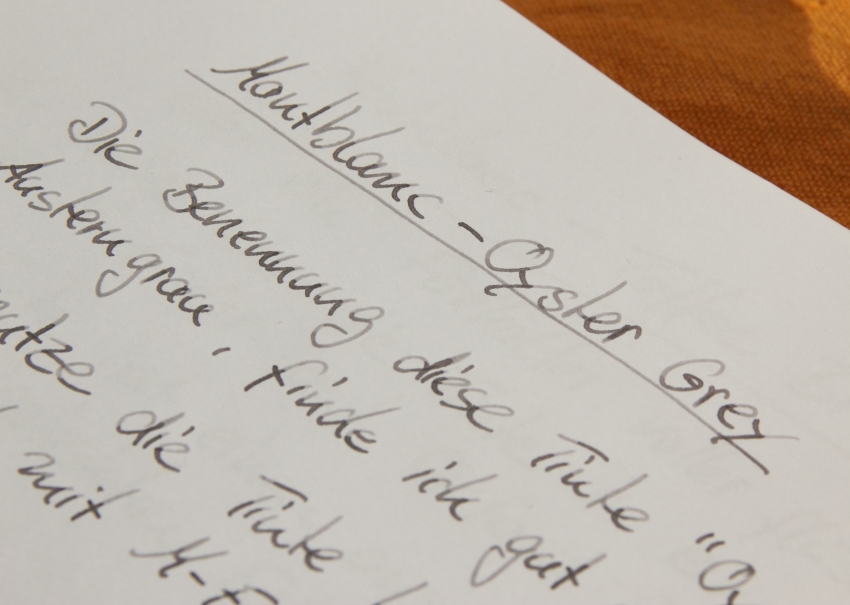 Montblanc - Oyster Grey
Die Benennung diese Tinte "Oy
Austerngrau, finde ich gut
utze die Tinte
mit M-F